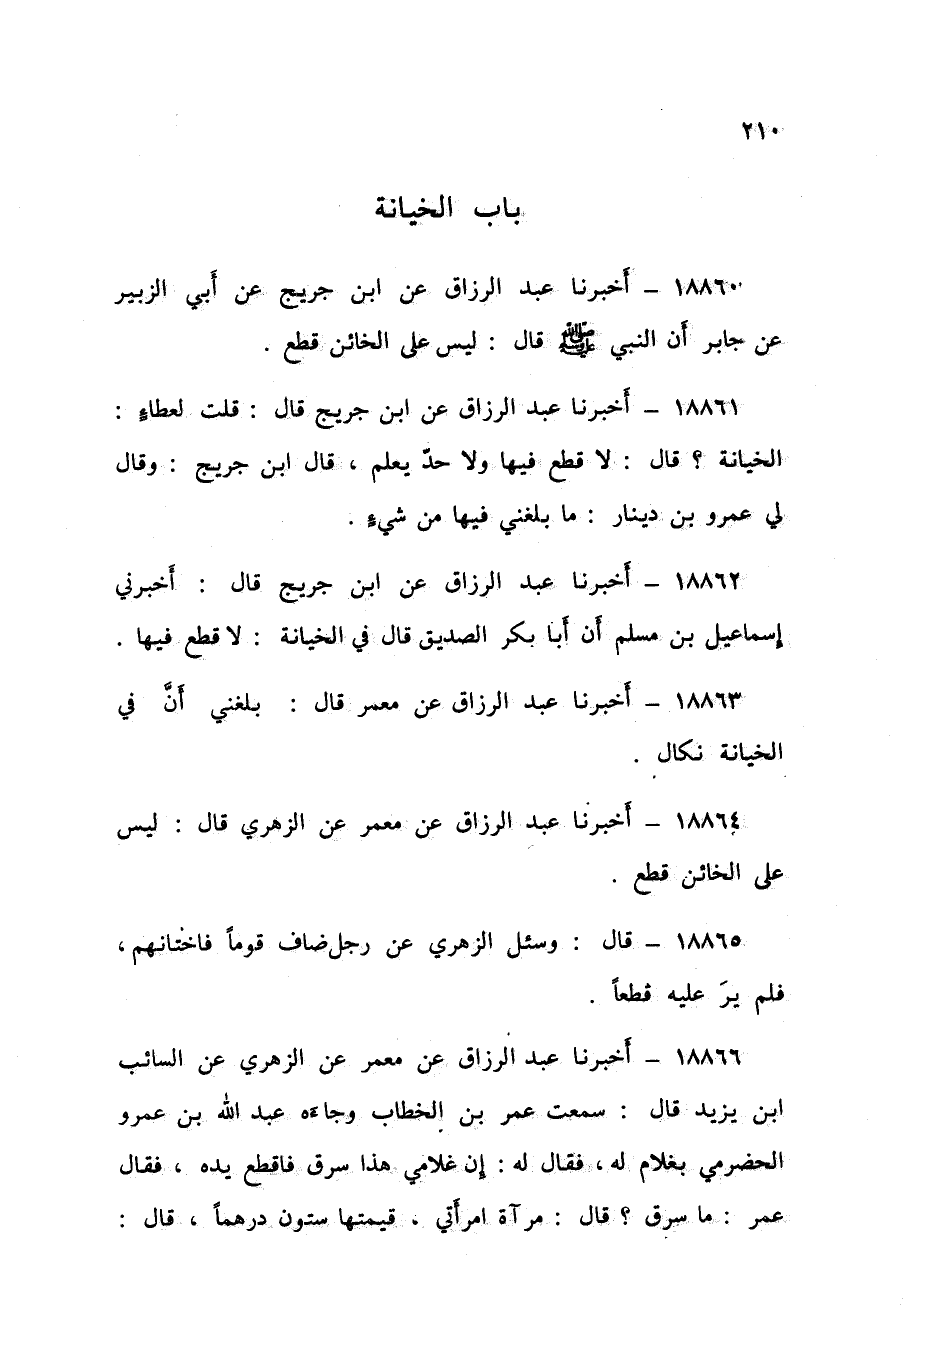 ٢١٠
باب الخيانة
١٨٨٦٠ – أَخبرنا عبد الرزاق عن ابن جريج عن أَبي الزبير
عن جابر أَن النبي ﷺ قال : ليس على الخائن قطع .
١٨٨٦١ – أَخبرنا عبد الرزاق عن ابن جريج قال : قلت لعطاءٍ :
الخيانة ؟ قال : لا قطع فيها ولا حدّ يعلم ، قال ابن جريج : وقال
لي عمرو بن دينار : ما بلغني فيها من شيءٍ .
١٨٨٦٢ – أَخبرنا عبد الرزاق عن ابن جريج قال : أَخبرني
إسماعيل بن مسلم أَن أَبا بكر الصديق قال في الخيانة : لا قطع فيها .
١٨٨٦٣ – أَخبرنا عبد الرزاق عن معمر قال : بلغني أَنَّ في
الخيانة نكال .
١٨٨٦٤ – أَخبرنا عبد الرزاق عن معمر عن الزهري قال : ليس
على الخائن قطع .
١٨٨٦٥ – قال : وسئل الزهري عن رجل ضاف قوماً فاختانهم ،
فلم يرَ عليه قطعاً .
١٨٨٦٦ – أَخبرنا عبد الرزاق عن معمر عن الزهري عن السائب
ابن يزيد قال : سمعت عمر بن الخطاب وجاءه عبد الله بن عمرو
الحضرمي بغلام له ، فقال له : إن غلامي هذا سرق فاقطع يده ، فقال
عمر : ما سرق ؟ قال : مرآة امرأَتي . قيمتها ستون درهماً ، قال :